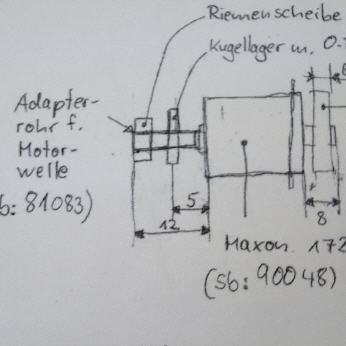 Riemenscheibe
Kugellager m. 0.
Adapter-
rohr f.
Motor-
welle
b: 81083)
5
12
8
Maxon. 172
(Sb: 90048)